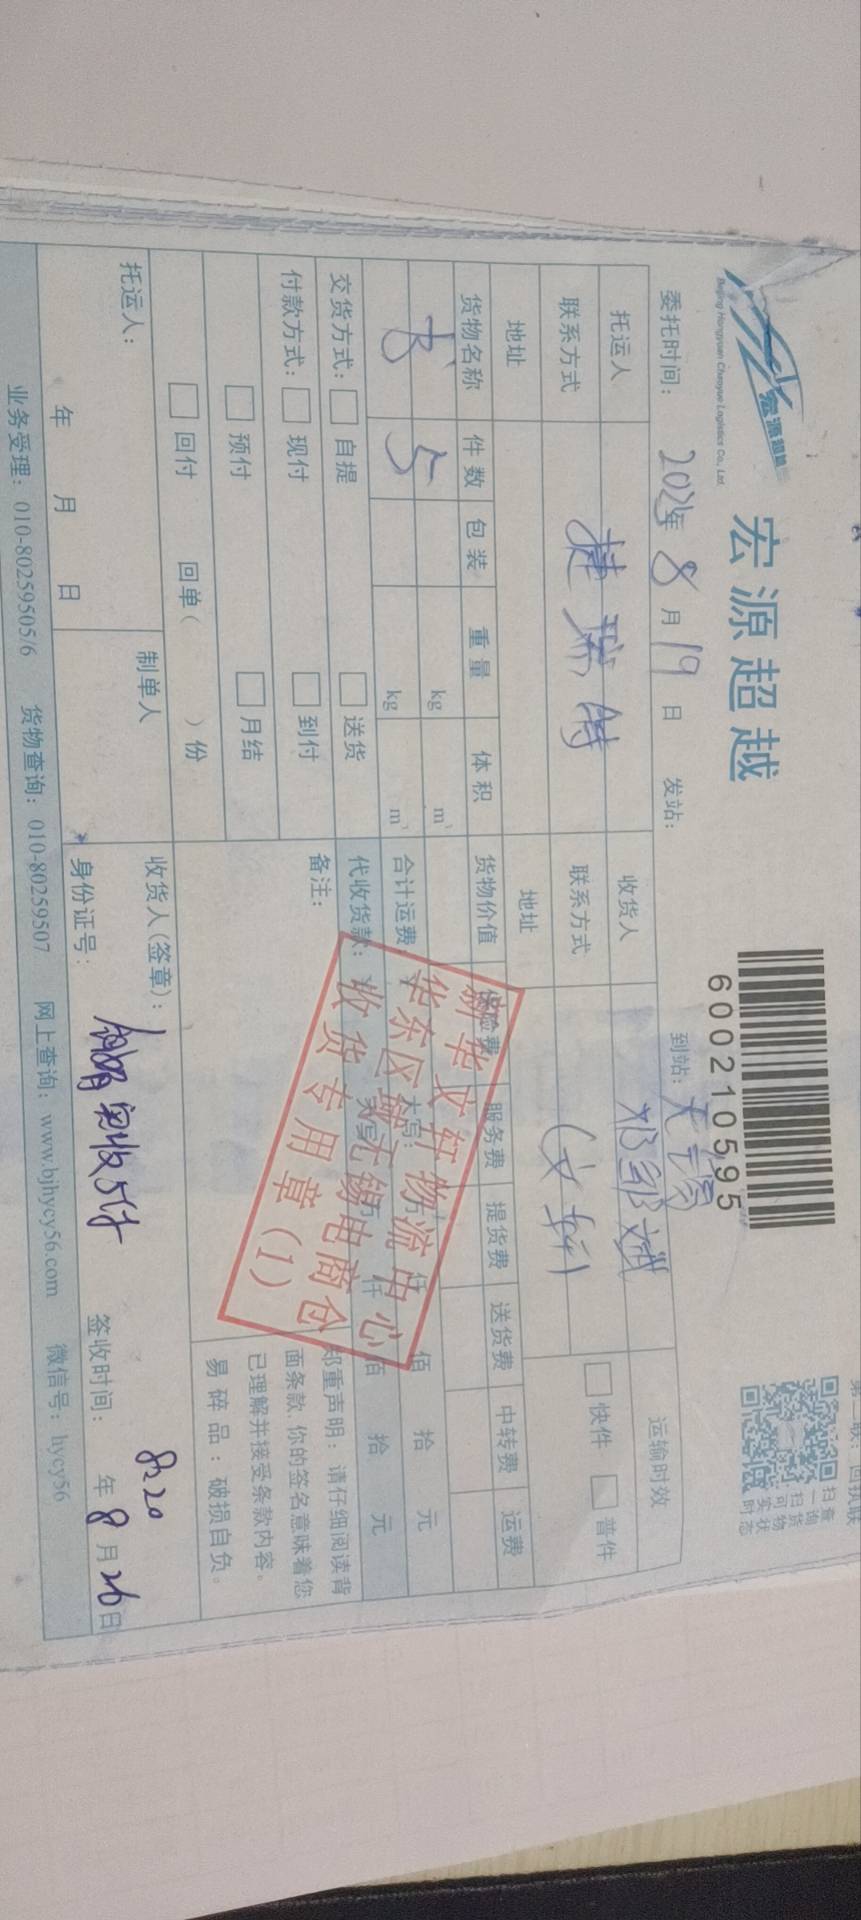 第二联：回执联
宏源超越
Beijing Hongyuan Chaoyue Logistics Co., Ltd.
宏源超越
600210595
扫一扫
查询货物实时状态
委托时间： 年 8 月 19 日 发站： 到站：无锡
托运人 捷瑞特 收货人 运输时效
联系方式 联系方式 (文轩) 快件 普件
地址 地址
货物名称 件数 包装 重量 体积 货物价值 保险费 服务费 提货费 送货费 中转费 运费
kg m³
书 5 kg m³ 合计运费： 大写： 仟 佰 拾 元
交货方式： 自提 送货 代收货款： 大写： 仟 佰 拾 元
付款方式： 现付 到付 备注：
预付 月结
回付 回单( )份
郑重声明：请仔细阅读背
面条款,你的签名意味着您
已理解并接受条款内容。
易碎品：破损自负。
新华文轩物流中心
华东区域无锡电商仓
收货专用章(1)
托运人： 制单人 收货人(签章)：
实收5件
8:20
年 月 日 身份证号： 签收时间： 年 8 月 20 日
业务受理：010-80259505/6 货物查询：010-80259507 网上查询：www.bjhycy56.com 微信号：hycy56